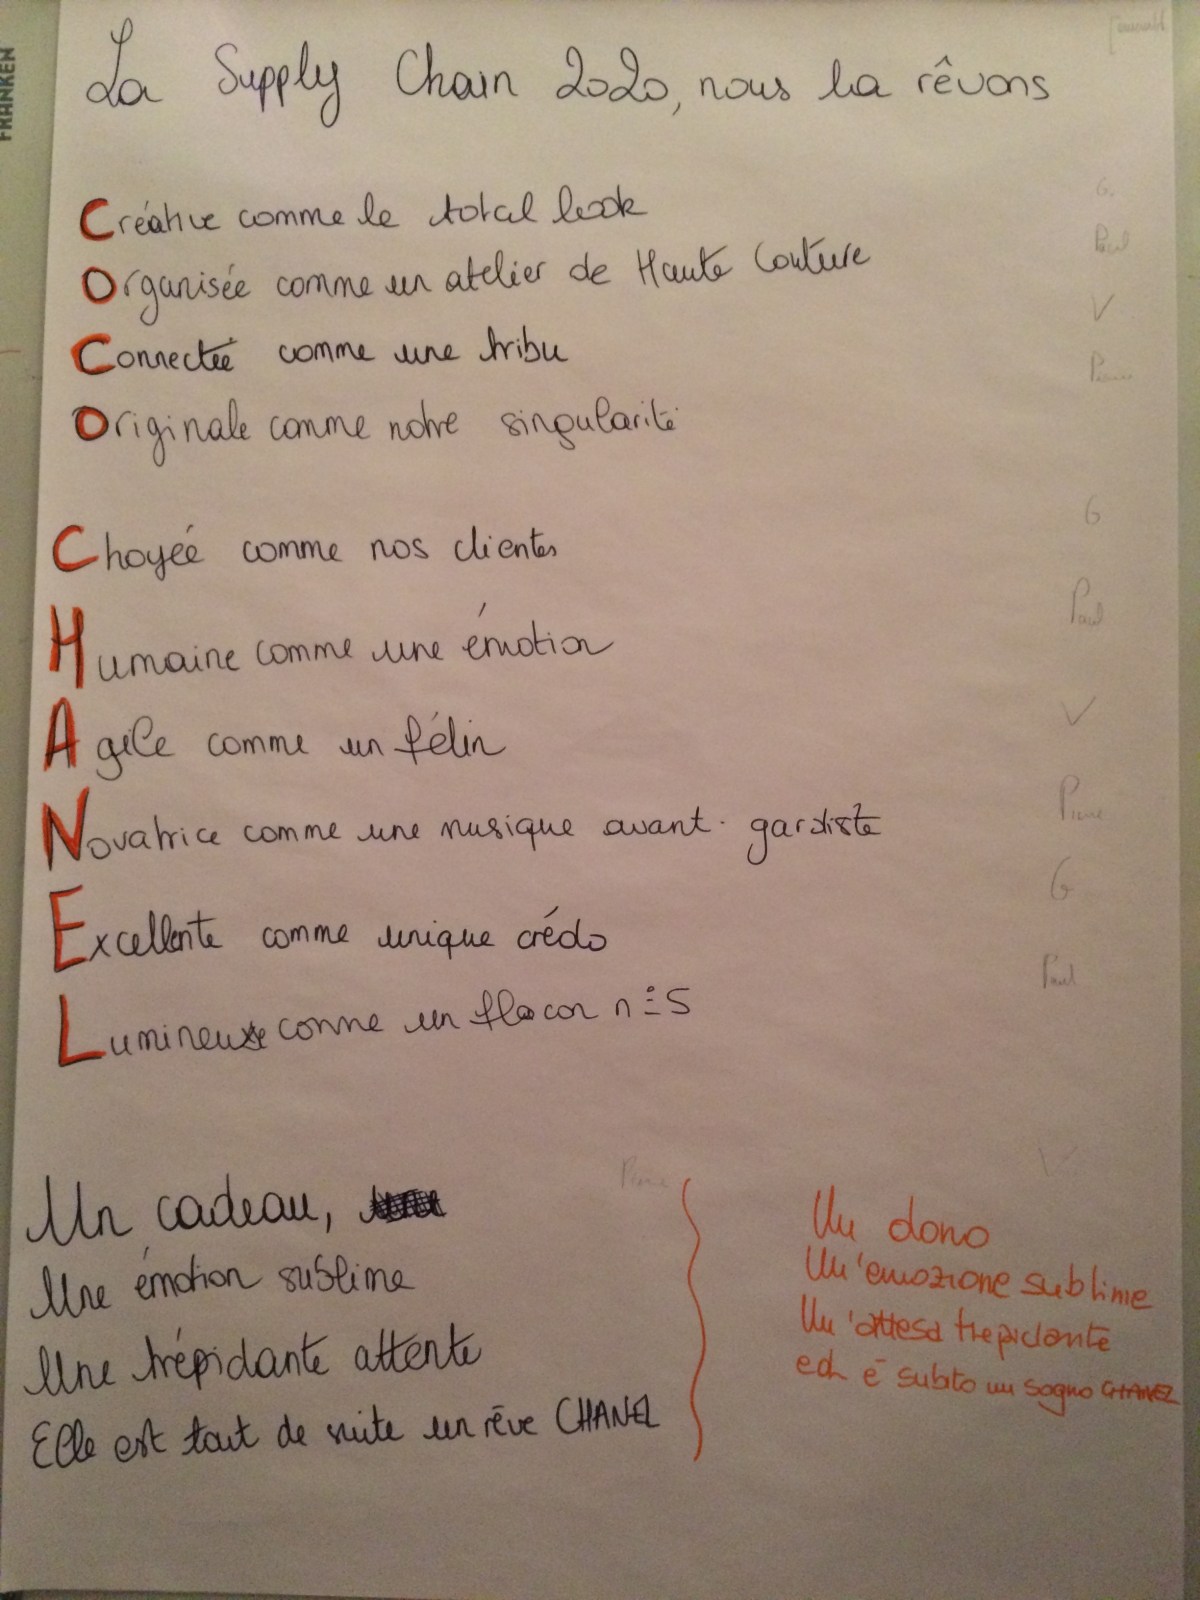 FRANKEN
La Supply Chain 2020, nous la rêvons
Créative comme le total look
G.
Organisée comme un atelier de Haute Couture
Paul
Connectée comme une tribu
V
Originale comme notre singularité
Pierre
Choyée comme nos clientes
G
Humaine comme une émotion
Paul
Agile comme un félin
V
Novatrice comme une musique avant-gardiste
Pierre
Excellente comme unique crédo
G
Lumineuse comme un flacon n°5
Paul
V
Pierre
Un cadeau,
Une émotion sublime
Une trépidante attente
Elle est tout de suite un rêve CHANEL
Un dono
Un'emozione sublime
Un'attesa trepidante
ed è subito un sogno CHANEL